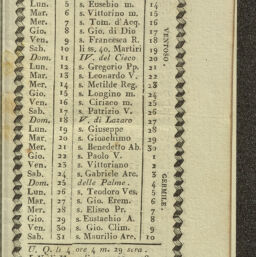 Lun. 5 s. Eusebio m. 14
Mar. 6 s. Vittorino m. 15
Mer. 7 s. Tom. d'Acq. 16
Gio. 8 s. Gio. di Dio 17
Ven. 9 s. Francesca R. 18
Sab. 10 li ss. 40. Martiri 19
Dom. 11 IV. del Cieco
Lun. 12 s. Gregorio Pp. 21
Mar. 13 s. Leonardo V. 22
Mer. 14 s. Metilde Reg. 23
Gio. 15 s. Longino m. 24
Ven. 16 s. Ciriaco m. 25
Sab. 17 s. Patrizio V. 26
Dom. 18 V. di Lazaro 27
Lun. 19 s. Giuseppe 28
Mar. 20 s. Gioachimo 29
Mer. 21 s. Benedetto Ab. 30
Gio. 22 s. Paolo V. 1
Ven. 23 s. Vittoriano
Sab. 24 s. Gabriele Arc. 3
Dom. 25 delle Palme. 4
Lun. 26 s. Teodoro Ves. 5
Mar. 27 s. Gio. Erem. 6
Mer. 28 s. Eliseo Pr. 7
Gio. 29 s. Eustachio A. 8
Ven. 30 s. Gio. Clim. 9
Sab. 31 s. Maurilio Arc. 10
VENTOSO.
GERMILE.
U. Q. li 4 ore 4 m. 29 sera.